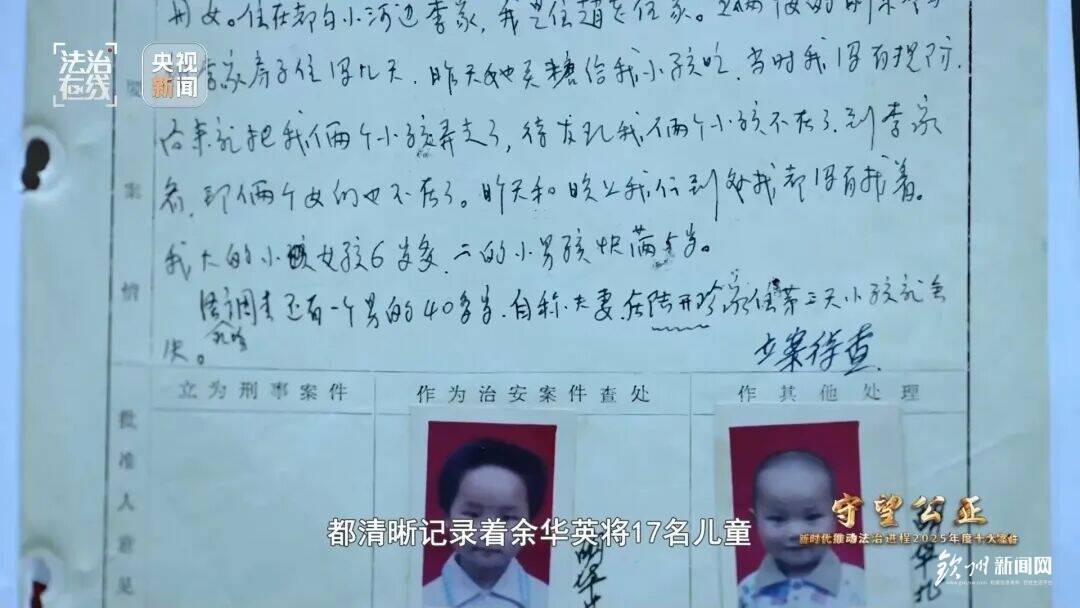 法治
在线
央视
新闻
用女。住在都白小河边李家，我是住赵
李家房子住得几天，昨天她买糖给我小孩吃，当时我没有提防，
后来就把我俩个小孩弄走了，待发现我俩个小孩不在了，到李家
看，那俩个女的也不在了。昨天和晚上我们到处找都没有找着。
我大的小女孩6岁多，二的小男孩快满5岁。
调查还有一个男的40多岁，自称夫妻，在陆开珍家住第三天小孩就
失。
立案侦查
案
情
立为刑事案件
作为治安案件查处
作其他处理
批
准
人
意
见
都清晰记录着余华英将17名儿童
守望公正
新时代推动法治进程2025年度十大案件
钦州新闻网